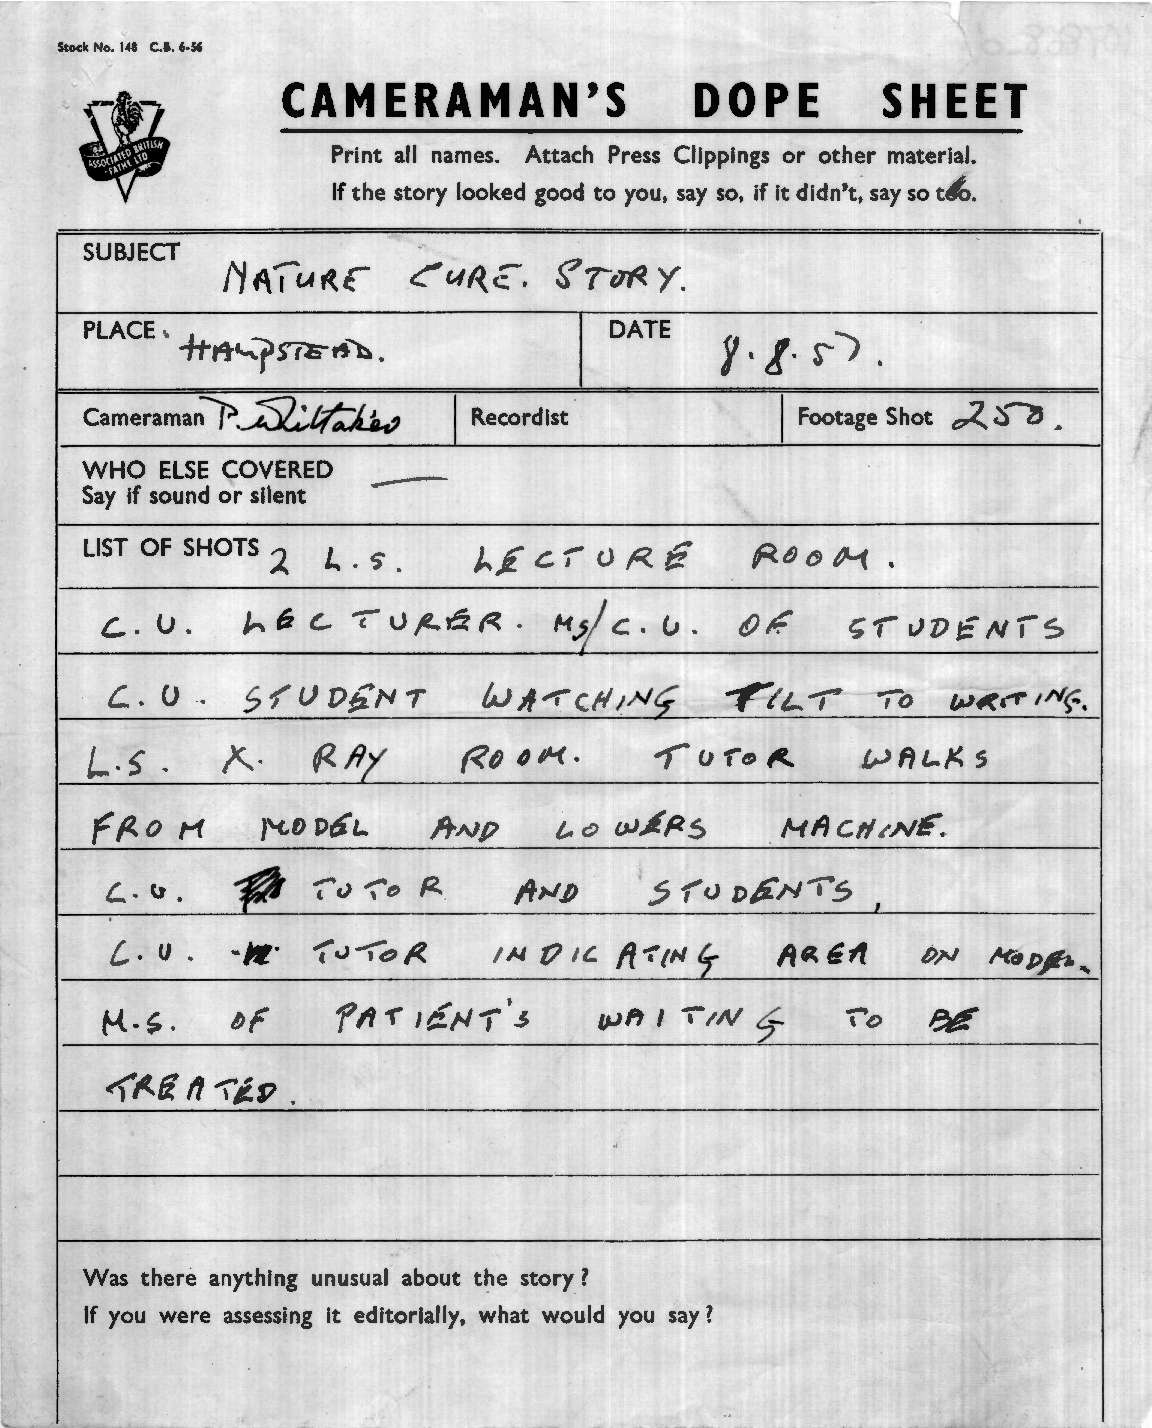 Stock No. 148 C.B. 6-56
CAMERAMAN'S DOPE SHEET
ASSOCIATED BRITISH
-PATHE LTD
Print all names. Attach Press Clippings or other material.
If the story looked good to you, say so, if it didn't, say so too.
SUBJECT
NATURE CURE. STORY.
PLACE
HAMPSTEAD.
DATE
8.8.57.
Cameraman P. Whittaker
Recordist
Footage Shot 250.
WHO ELSE COVERED —
Say if sound or silent
LIST OF SHOTS 2 L.S. LECTURE ROOM.
C.U. LECTURER. MS/C.U. OF STUDENTS
C.U. STUDENT WATCHING TILT TO WRITING.
L.S. X. RAY ROOM. TUTOR WALKS
FROM MODEL AND LOWERS MACHINE.
C.U. TUTOR AND STUDENTS,
C.U. TUTOR INDICATING AREA ON MODEL.
M.S. OF PATIENT'S WAITING TO BE
TREATED.
Was there anything unusual about the story?
If you were assessing it editorially, what would you say?